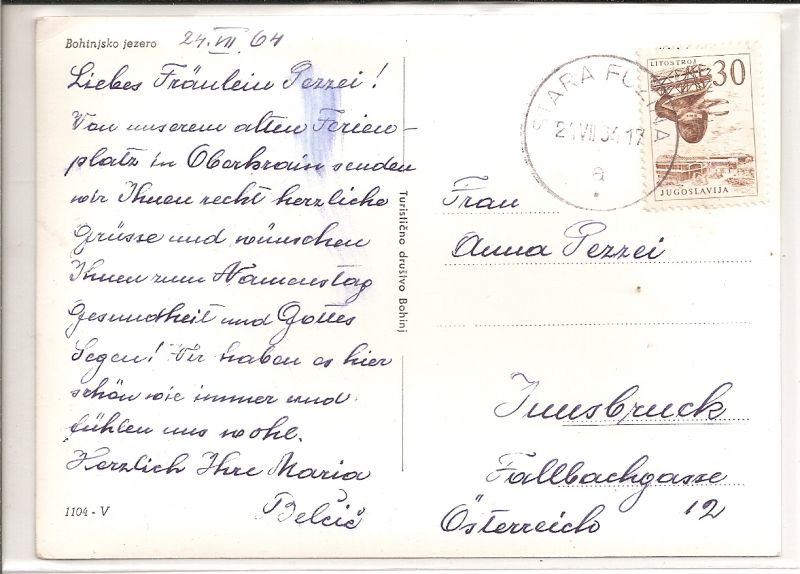 Bohinjsko jezero
24. VII 64
Liebes Fräulein Pezzei!
Von unserem alten Ferien-
platz in Oberkrain senden
wir Ihnen recht herzliche
Grüsse und wünschen
Ihnen zum Namenstag
Gesundheit und Gottes
Segen! Wir haben es hier
schön wie immer und
fühlen uns wohl.
Herzlich Ihre Maria
Belčič
1104 - V
Turistično društvo Bohinj
STARA FUŽINA
a
LITOSTROJ
30
JUGOSLAVIJA
Frau
Anna Pezzei
Innsbruck
Fallbachgasse
12
Österreich